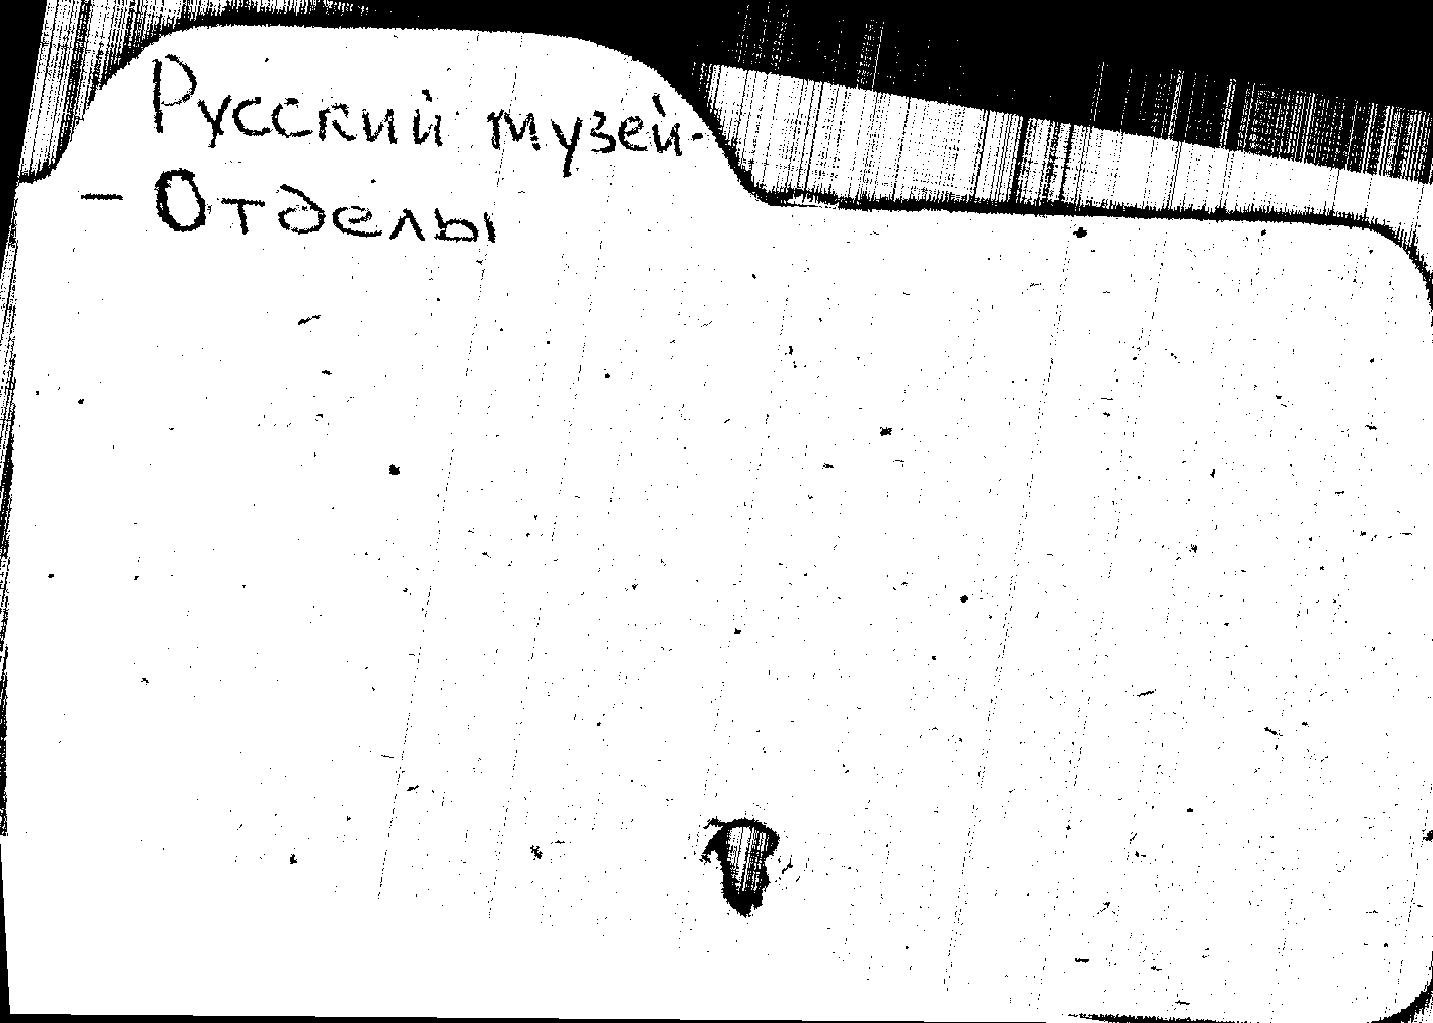 Русский музей-
- Отделы